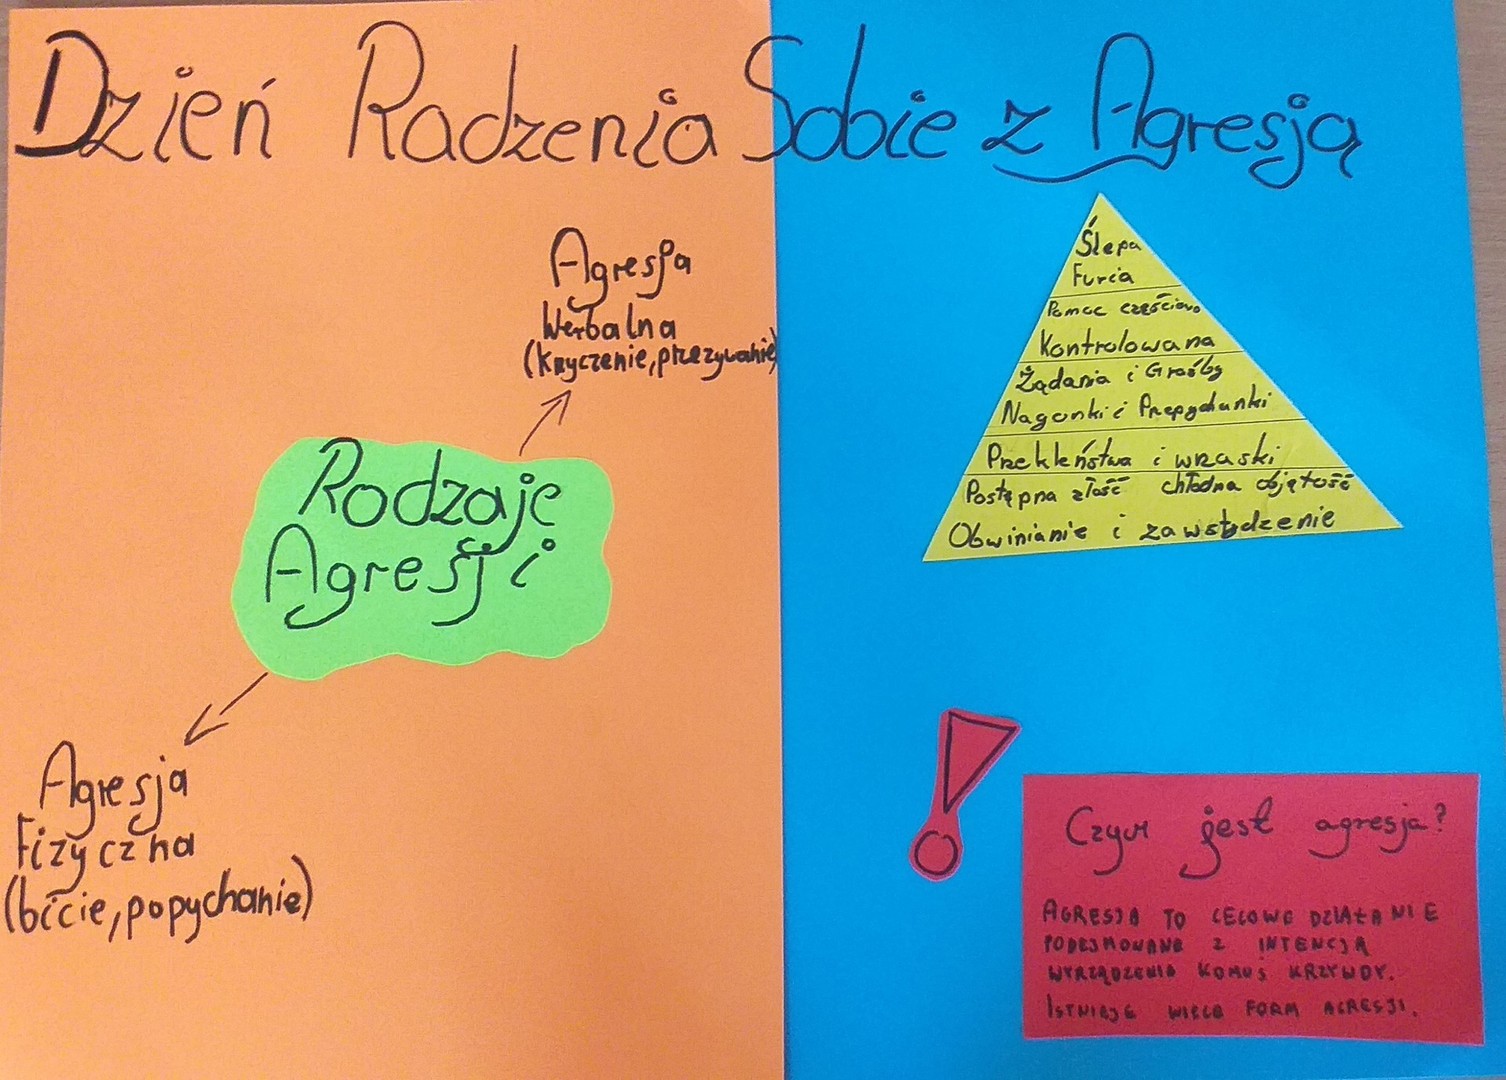 Dzień Radzenia Sobie z Agresją
Agresja
Werbalna
(kryczenie, przezywanie)
Rodzaje
Agresji
Agresja
Fizyczna
(bicie, popychanie)
Ślepa
Furia
Pomoc częściowo
Kontrolowana
Żądania i Groźby
Nagonki i Przepychanki
Przekleństwa i wrzaski
Postępna złość chłodna objętość
Obwinianie i zawstydzenie
Czym jest agresja?
AGRESJA TO CELOWE DZIAŁANIE
PODEJMOWANE Z INTENCJĄ
WYRZĄDZENIA KOMUŚ KRZYWDY.
ISTNIEJE WIELE FORM AGRESJI.